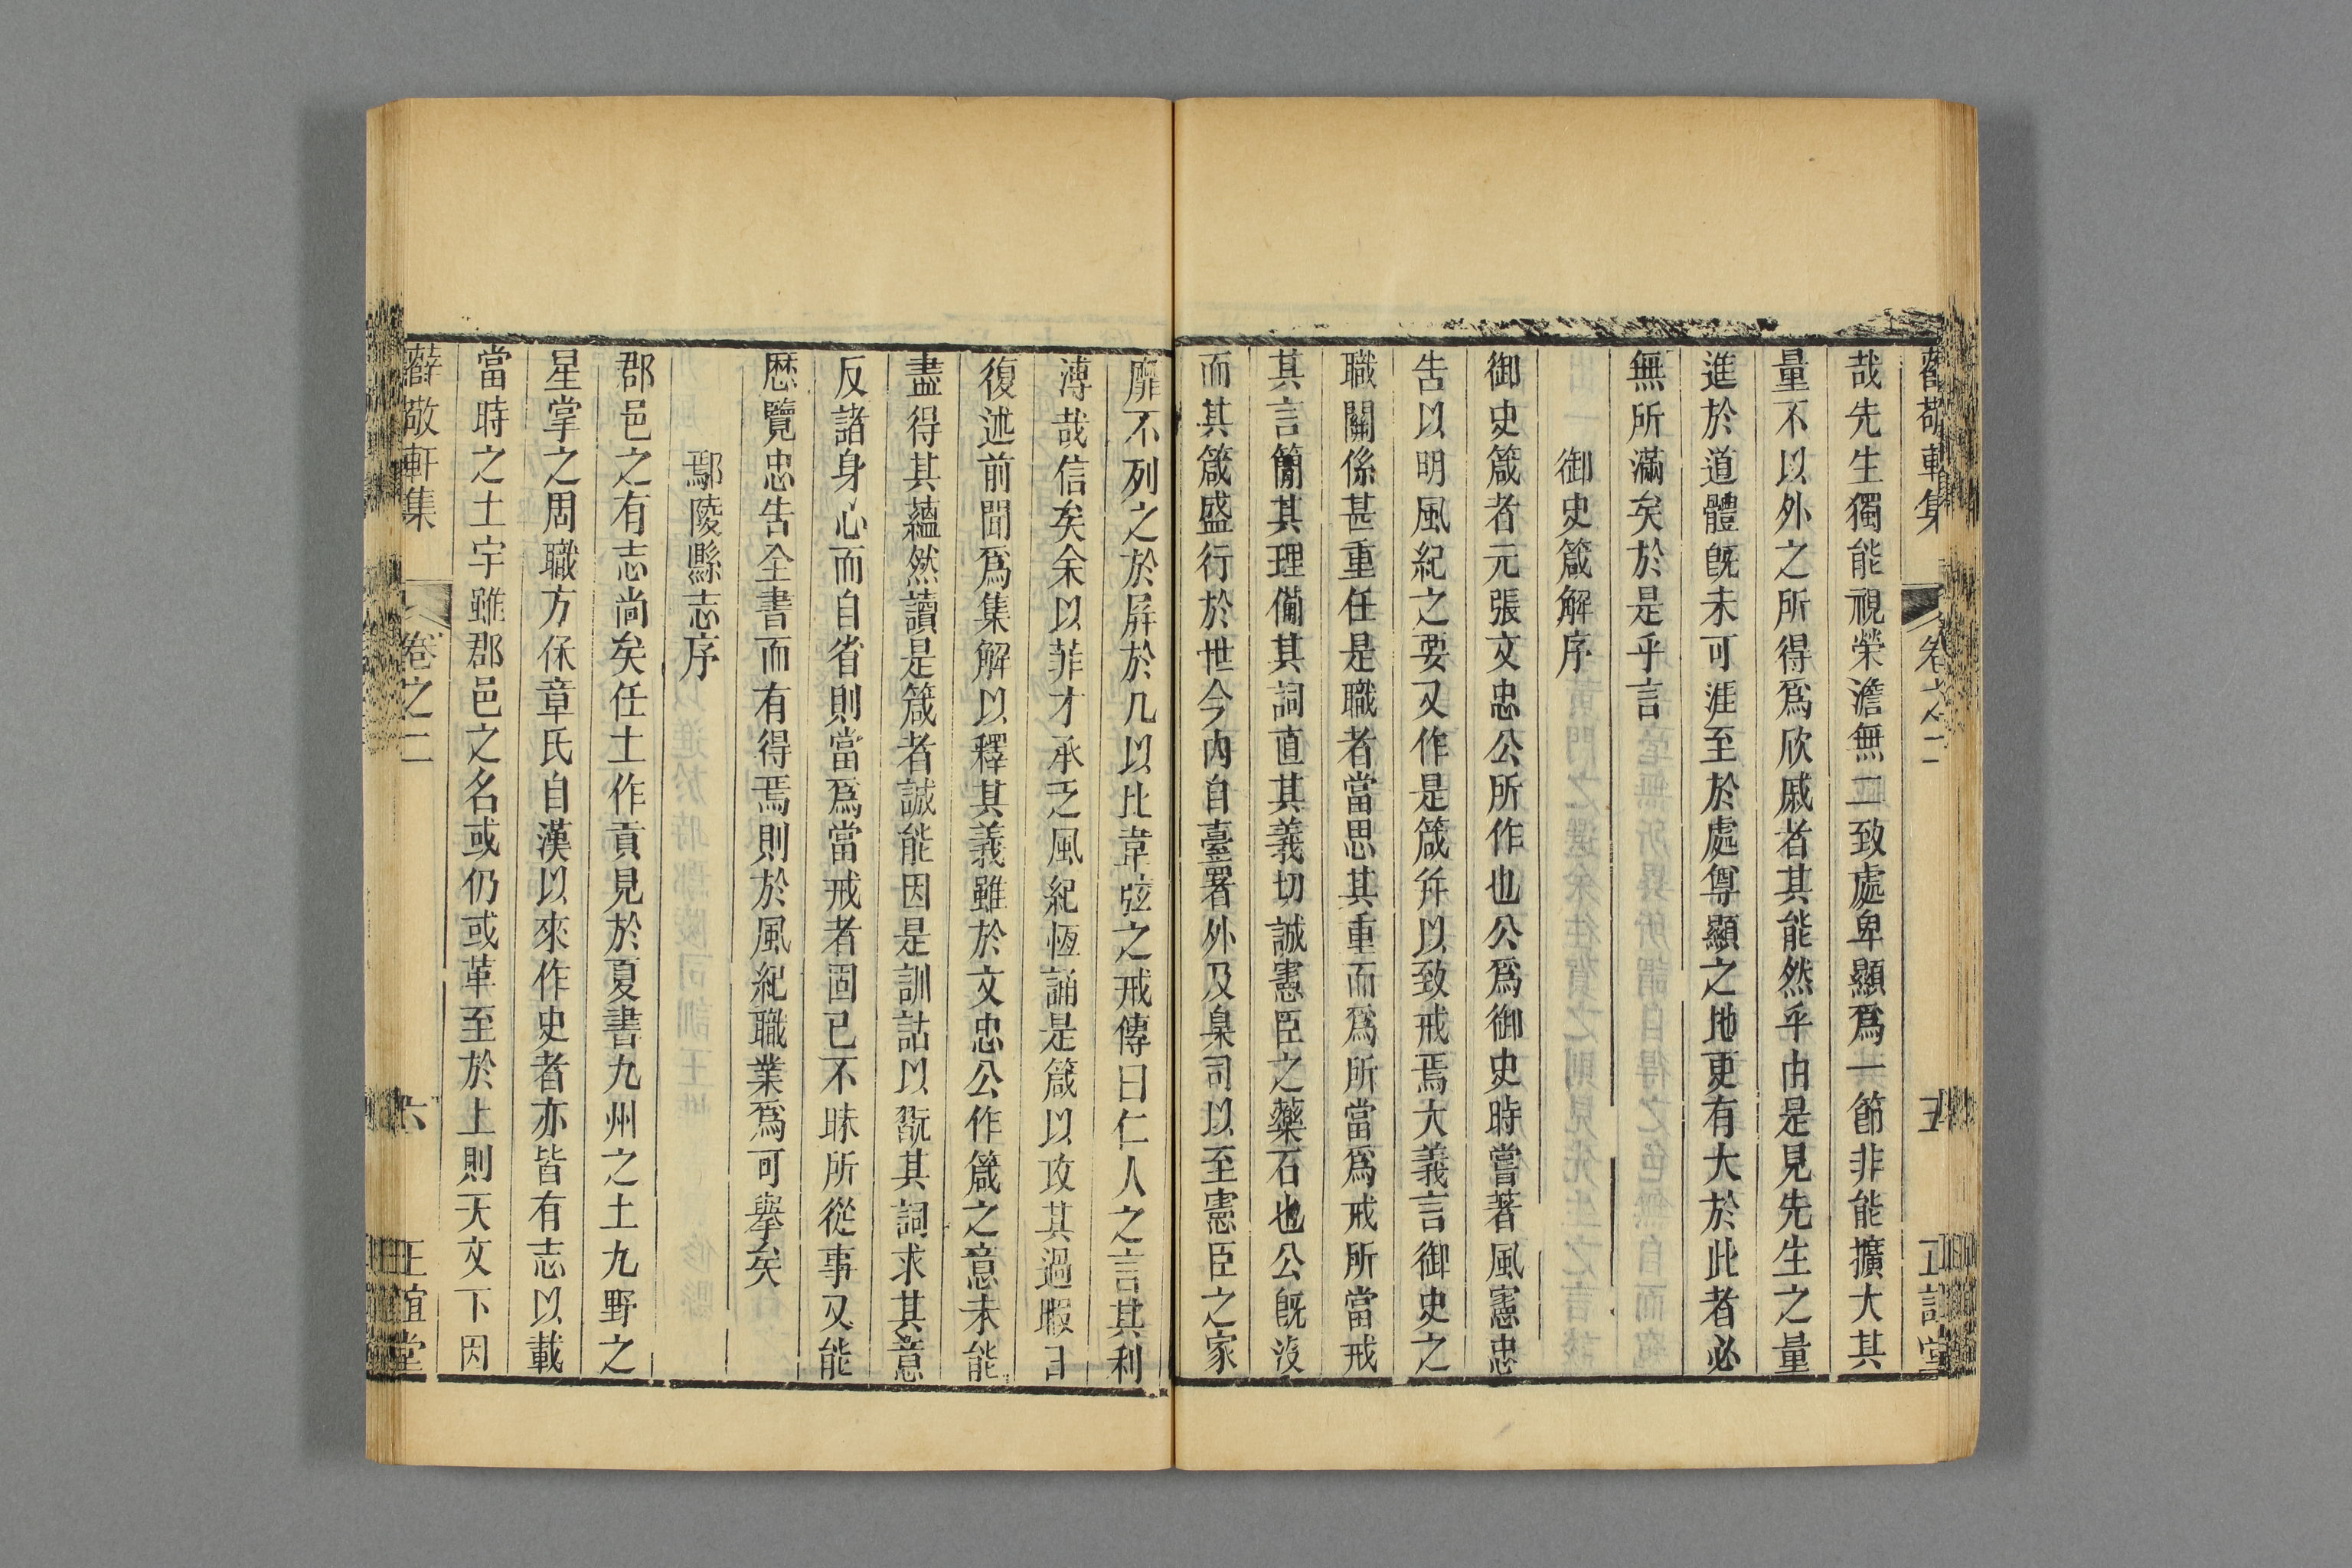 薛敬軒集 卷之二 五 正誼堂
哉先生獨能視榮澹無二致處卑顯爲一節非能擴大其
量不以外之所得爲欣戚者其能然乎由是見先生之量
進於道體旣未可涯至於處尊顯之地更有大於此者必
無所滿矣於是乎言
御史箴解序
御史箴者元張文忠公所作也公爲御史時嘗著風憲忠
告以明風紀之要又作是箴幷以致戒焉大義言御史之
職關係甚重任是職者當思其重而爲所當爲戒所當戒
其言簡其理備其詞直其義切誠憲臣之藥石也公旣沒
而其箴盛行於世今內自臺署外及臬司以至憲臣之家
靡不列之於屛於几以比韋弦之戒傳曰仁人之言其利
溥哉信矣余以菲才承乏風紀恆誦是箴以攻其過暇日
復述前聞爲集解以釋其義雖於文忠公作箴之意未能
盡得其蘊然讀是箴者誠能因是訓詁以翫其詞求其意
反諸身心而自省則當爲當戒者固已不昧所從事又能
歷覽忠告全書而有得焉則於風紀職業爲可舉矣
鄢陵縣志序
郡邑之有志尚矣任土作貢見於夏書九州之土九野之
星掌之周職方保章氏自漢以來作史者亦皆有志以載
當時之土宇雖郡邑之名或仍或革至於上則天文下因
薛敬軒集 卷之二 六 正誼堂